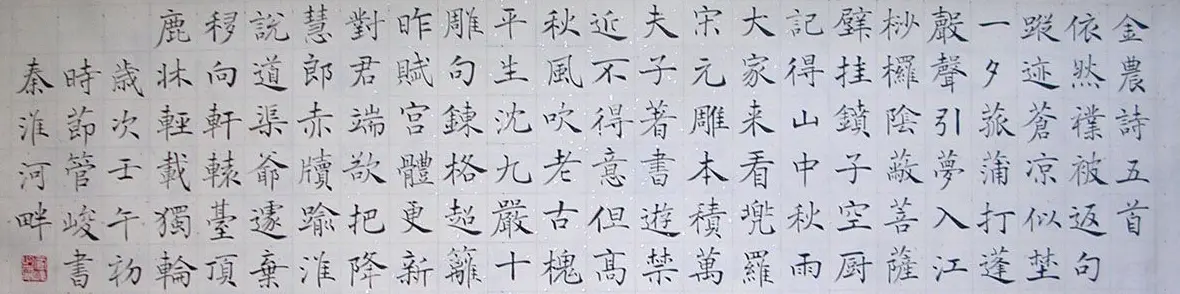 金農詩五首
依然襆被返句
蹤迹蒼凉似埜
一夕菰蒲打蓬
殸聲引夢入江
桫欏陰蔽菩薩
壁挂鐼子空厨
記得山中秋雨
大家来看兜羅
宋元雕本積萬
夫子著書遊禁
近不得意但高
秋風吹老古槐
平生沈九嚴十
雕句鍊格超籬
昨賦宫體更新
對君端欲把降
慧郎赤牘踰淮
說道渠爺遽棄
移向軒轅臺頂
鹿牀輕載獨輪
歲次壬午初
時節管峻書
秦淮河畔